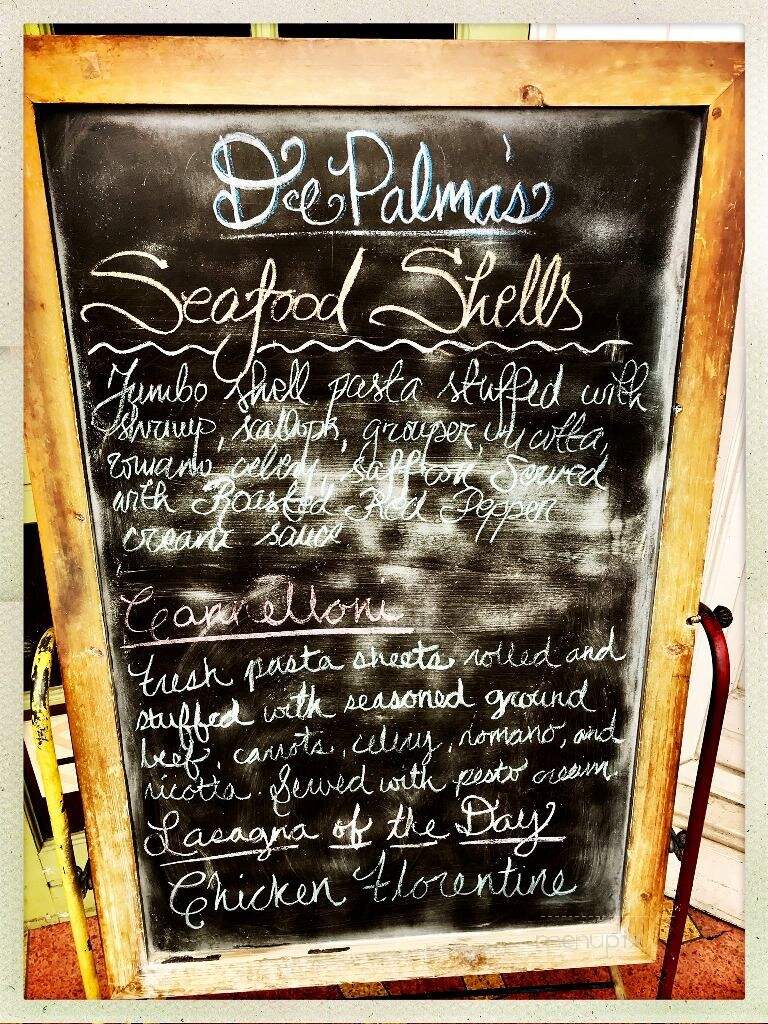 DePalma's
Seafood Shells
Jumbo shell pasta stuffed with
shrimp, scallops, grouper, ricotta,
romano, celery, saffron. Served
with Roasted Red Pepper
cream sauce
Cannelloni
Fresh pasta sheets rolled and
stuffed with seasoned ground
beef, carrots, celery, romano, and
ricotta. Served with pesto cream.
Lasagna of the Day
Chicken Florentine